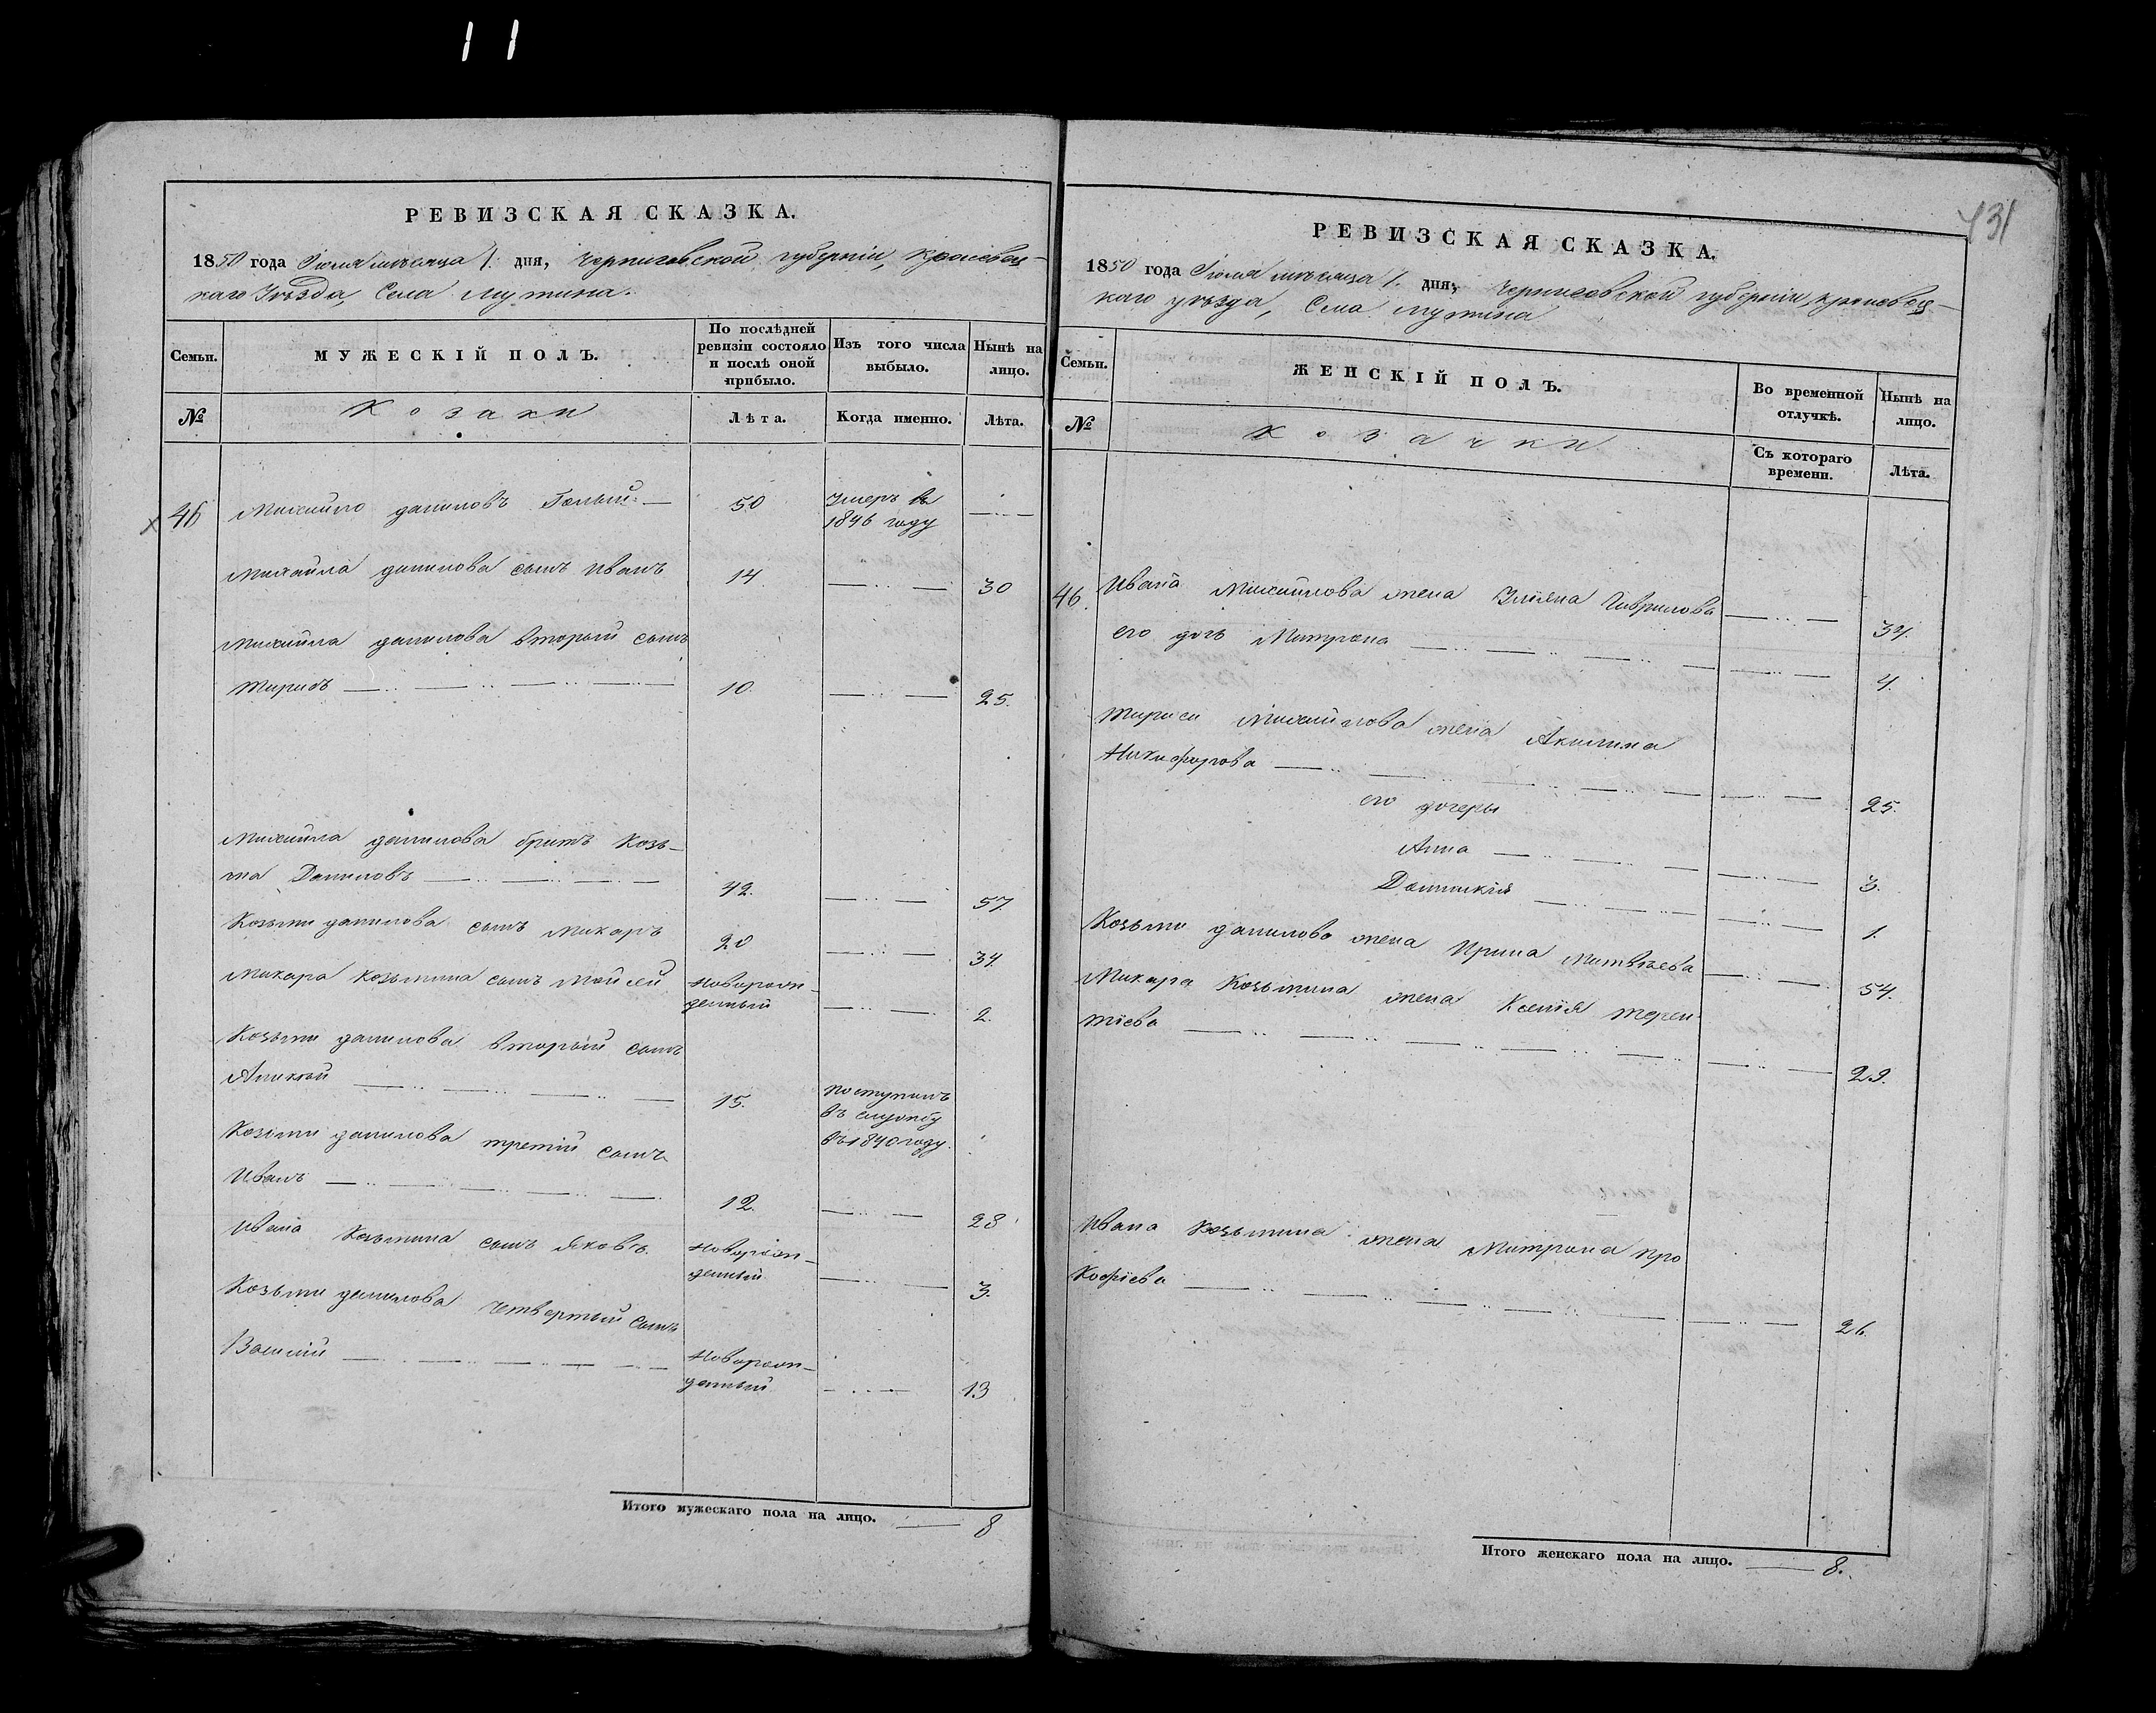 11
431
РЕВИЗСКАЯ СКАЗКА.
1850 года Іюля мѣсяца 1. дня, Черниговской губерніи, Кролевец-
каго Уѣзда, Села Мутина.
Семьи.
МУЖЕСКІЙ ПОЛЪ.
По послѣдней ревизіи состояло и послѣ оной прибыло.
Изъ того числа выбыло.
Нынѣ на лицо.
№
Козаки
Лѣта.
Когда именно.
Лѣта.
46 Михайло Даниловъ Голый 50 Умеръ въ
1846 году
Михайла Данилова сынъ Иванъ 14 30
Михайла Данилова вторый сынъ
Тарасъ 10. 25.
Михайла Данилова братъ Козь-
ма Даниловъ 42. 57.
Козьмы Данилова сынъ Макаръ 20 34.
Макара Козьмина сынъ Мойсей Новорож-
денный 2.
Козьмы Данилова вторый сынъ
15. Поступилъ
въ службу
въ 1840 году.
Козьмы Данилова третій сынъ
Иванъ 12. 28
Ивана Козьмина сынъ Яковъ Новорож-
денный 3.
Козьмы Данилова четвертый сынъ
Василій Новорож-
денный 13
Итого мужескаго пола на лицо. 8
РЕВИЗСКАЯ СКАЗКА.
1850 года Іюля мѣсяца 1. дня, Черниговской губерніи, Кролевец-
каго уѣзда, Села Мутина
Семьи.
ЖЕНСКІЙ ПОЛЪ.
Во временной отлучкѣ.
Нынѣ на лицо.
№
Козачки
Съ котораго времени.
Лѣта.
46. Ивана Михайлова жена Улiяна Гаврилова 34.
его дочь Матрона 4.
Тараса Михайлова жена Акилина
Никифорова 25.
его дочери
Анна 3.
Домникія 1.
Козьмы Данилова жена Ирина Матвѣева 54.
Макара Козьмина жена Ксенія Терен
тіева 29.
Ивана Козьмина жена Матрона Про
кофіева 26.
Итого женскаго пола на лицо. 8.